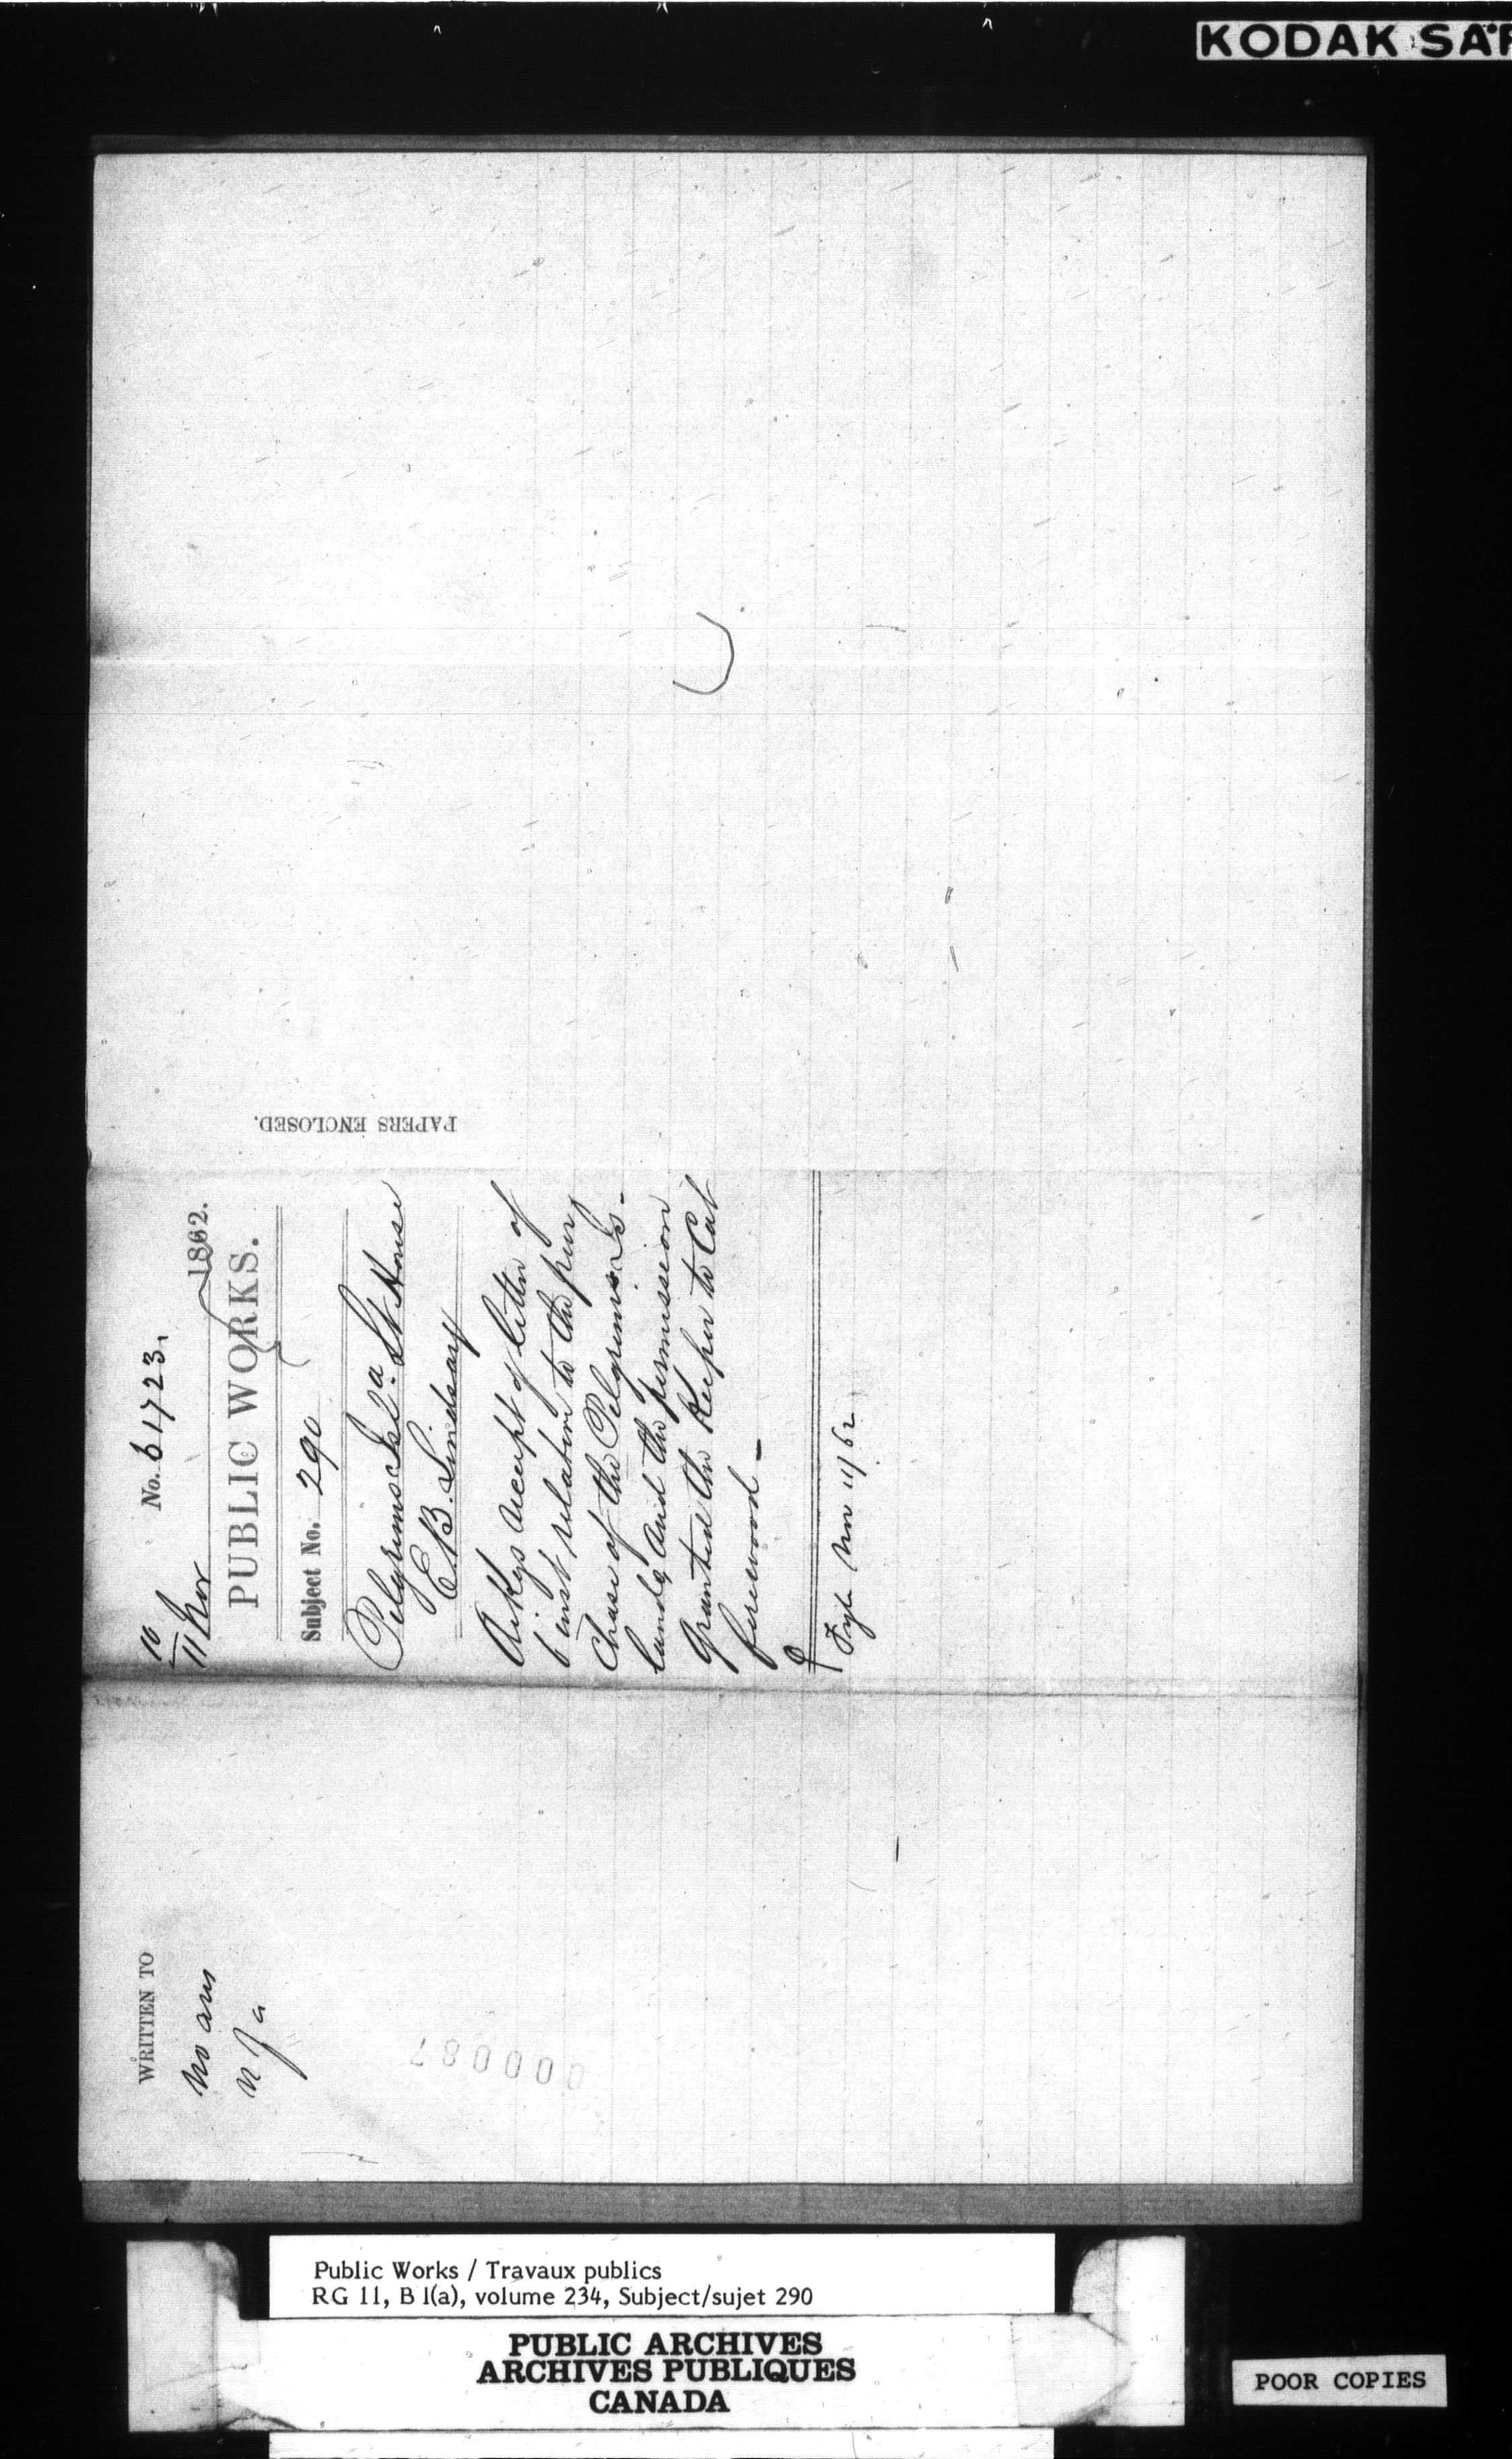 KODAK SAF
10
11 Nov
No. 61723.
1862.
PUBLIC WORKS.
Subject No. 290
Pilgrims Isl.a Lt House
E.B. Lindsay
Ackgs receipt of letter of
6 inst relative to the pur
chase of the Pilgrims Is-
lands, and the permission
granted the Keeper to Cut
firewood —
Fyle Nov 11/62
PAPERS ENCLOSED.
WRITTEN TO
No ans
000087
Public Works / Travaux publics
RG 11, B 1(a), volume 234, Subject/sujet 290
PUBLIC ARCHIVES
ARCHIVES PUBLIQUES
CANADA
POOR COPIES